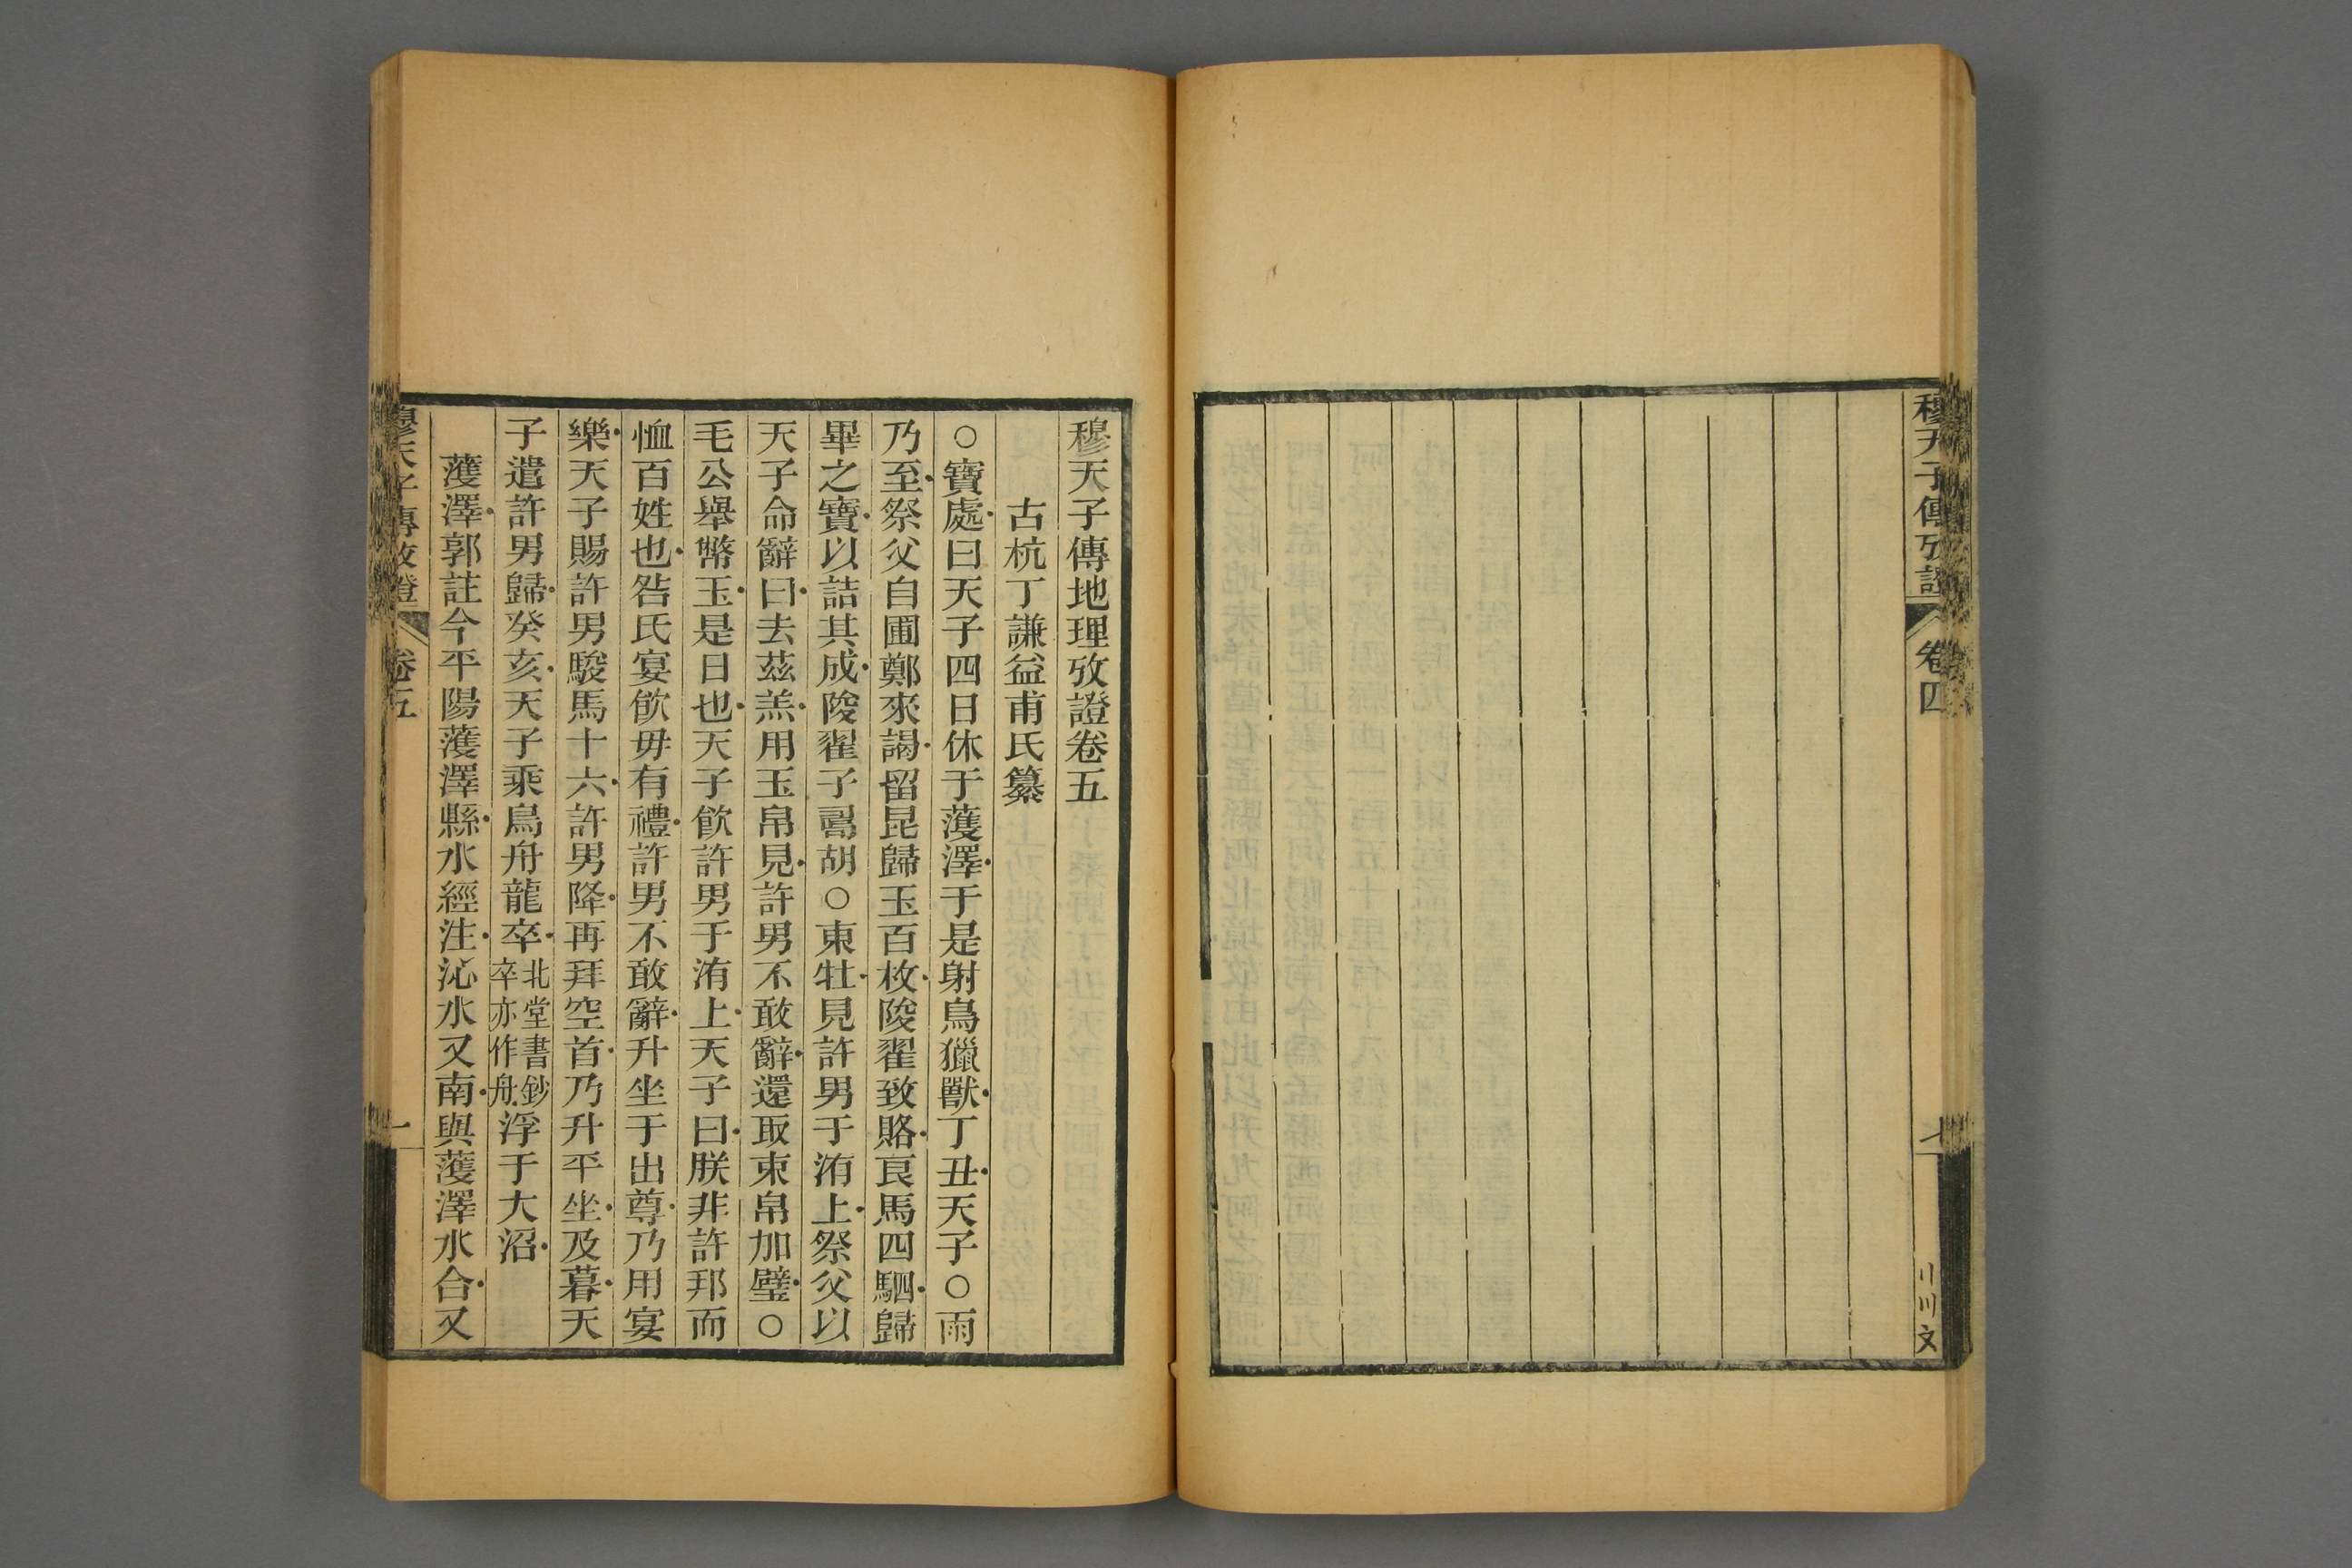 穆天子傳攷證
卷四
七
川川文
穆天子傳地理攷證卷五
古杭丁謙益甫氏纂
○寶處曰天子四日休于濩澤于是射鳥獵獸丁丑天子○雨
乃至祭父自圃鄭來謁留昆歸玉百枚陖翟致賂良馬四駟歸
畢之寶以詰其成陖翟子胡○東牡見許男于洧上祭父以
天子命辭曰去茲羔用玉帛見許男不敢辭還取束帛加璧○
毛公舉幣玉是日也天子飲許男于洧上天子曰朕非許邦而
恤百姓也咎氏宴飲毋有禮許男不敢辭升坐于出尊乃用宴
樂天子賜許男駿馬十六許男降再拜空首乃升平坐及暮天
子遣許男歸癸亥天子乘鳥舟龍卒北堂書鈔卒亦作舟浮于大沼
濩澤郭註今平陽濩澤縣水經注沁水又南與濩澤水合又
穆天子傳攷證
卷五
一